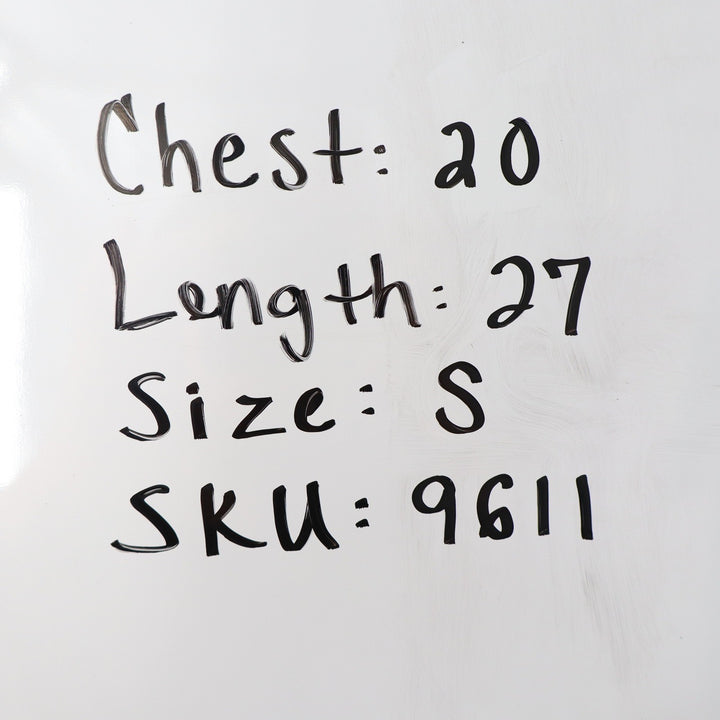 Chest: 20
Length: 27
Size: S
SKU: 9611